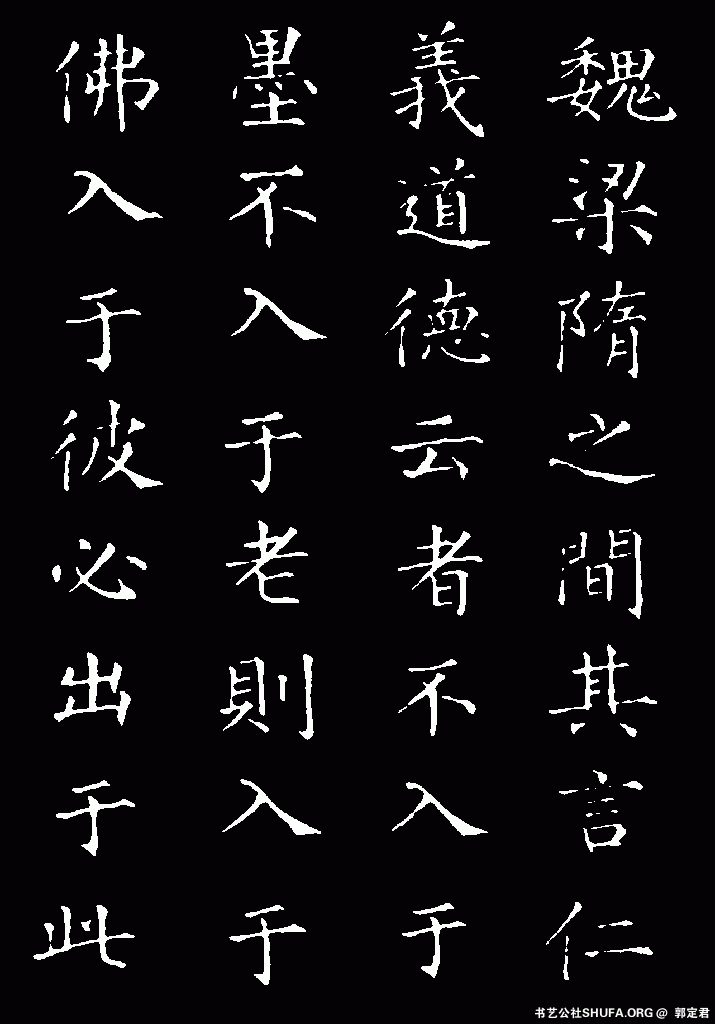 魏梁隋之間其言仁
義道德云者不入于
墨不入于老則入于
佛入于彼必出于此
书艺公社SHUFA.ORG @ 郭定君